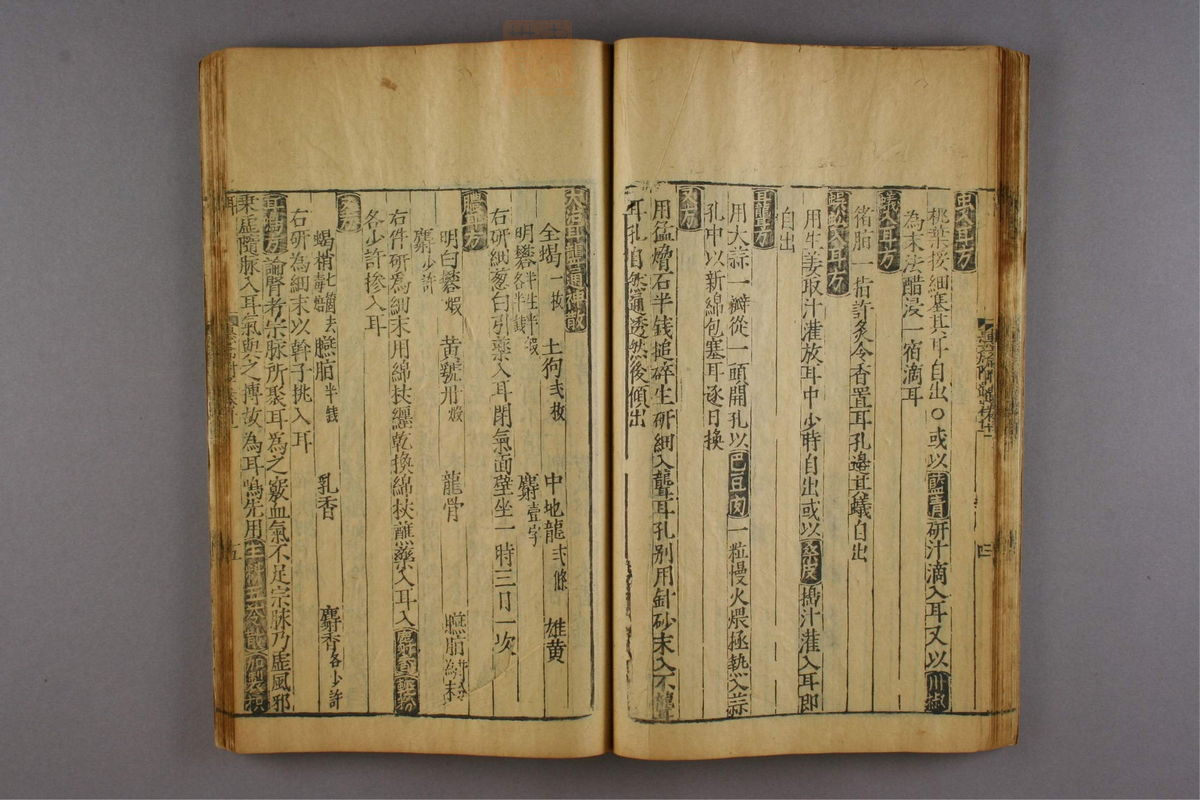 虫入耳方
桃葉挼細塞其耳自出○或以藍青研汁滴入耳又以川椒
為末法醋浸一宿滴耳
蟻入耳方
猪脂一指許炙令香置耳孔邊其蟻自出
蜈蚣入耳方
用生姜取汁灌放耳中少時自出或以桑皮搗汁灌入耳即
自出
耳聾方
用大蒜一瓣從一頭開孔以巴豆肉一粒慢火煨極熱入蒜
孔中以新綿包塞耳逐日換
又方
用磁石半钱搥碎生研細入聾耳孔别用針砂末入不聾
耳孔自然通透然後傾出
大治耳聾通神散
全蝎一枚 土狗弍枚 中地龍弍條 雄黄
明礬半生半煆各半錢 麝壹字
右研細葱白引藥入耳閉氣面壁坐一時三日一次
聤耳方
明白礬煆 黄 煅 龍骨 臙脂
麝少許
右件研爲細末用綿杖纏乾换綿杖蘸藥入耳入
各少許摻入耳
又方
蝎梢七箇去毒焙 臙脂半钱 乳香 麝香各少許
右研為細末以斡子挑入耳
耳鳴方 論腎者宗脉所聚耳為之竅血氣不足宗脉乃虚風邪
乗虚隨脉入耳氣與之搏故為耳鳴先用生料五苓散加製枳
耳
五